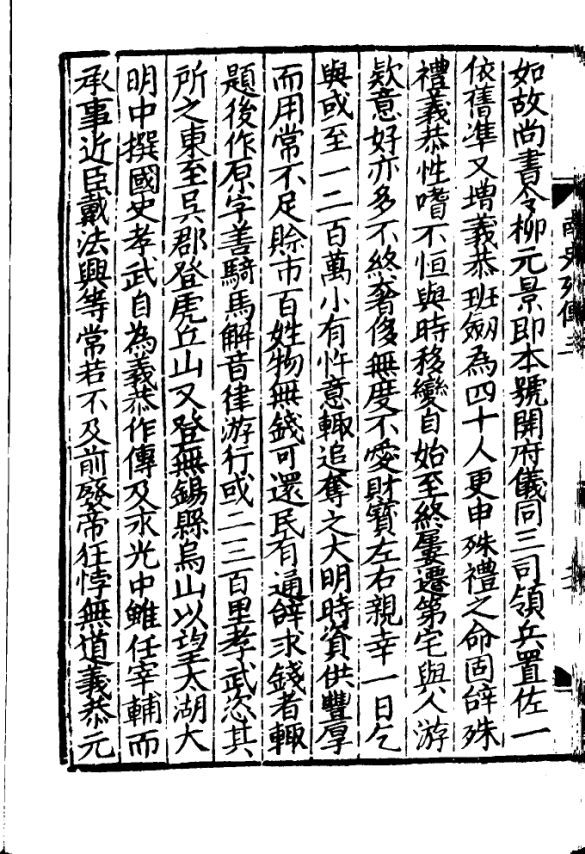 南史列傳三
如故尚書令柳元景即本號開府儀同三司領兵置佐一
依舊準又增義恭班劒為四十人更申殊禮之命固辝殊
禮義恭性嗜不恒與時移變自始至終屢遷第宅與人游
欵意好亦多不終奢侈無度不愛財寳左右親幸一日乞
與或至一二百萬小有忤意輙追奪之大明時資供豐厚
而用常不足賒市百姓物無錢可還民有通辝求錢者輙
題後作原字善騎馬解音律游行或二三百里孝武恣其
所之東至吳郡登虎丘山又登無錫縣烏山以望太湖大
明中撰國史孝武自為義恭作傳及永光中雖任宰輔而
承事近臣戴法興等常若不及前廢帝狂悖無道義恭元